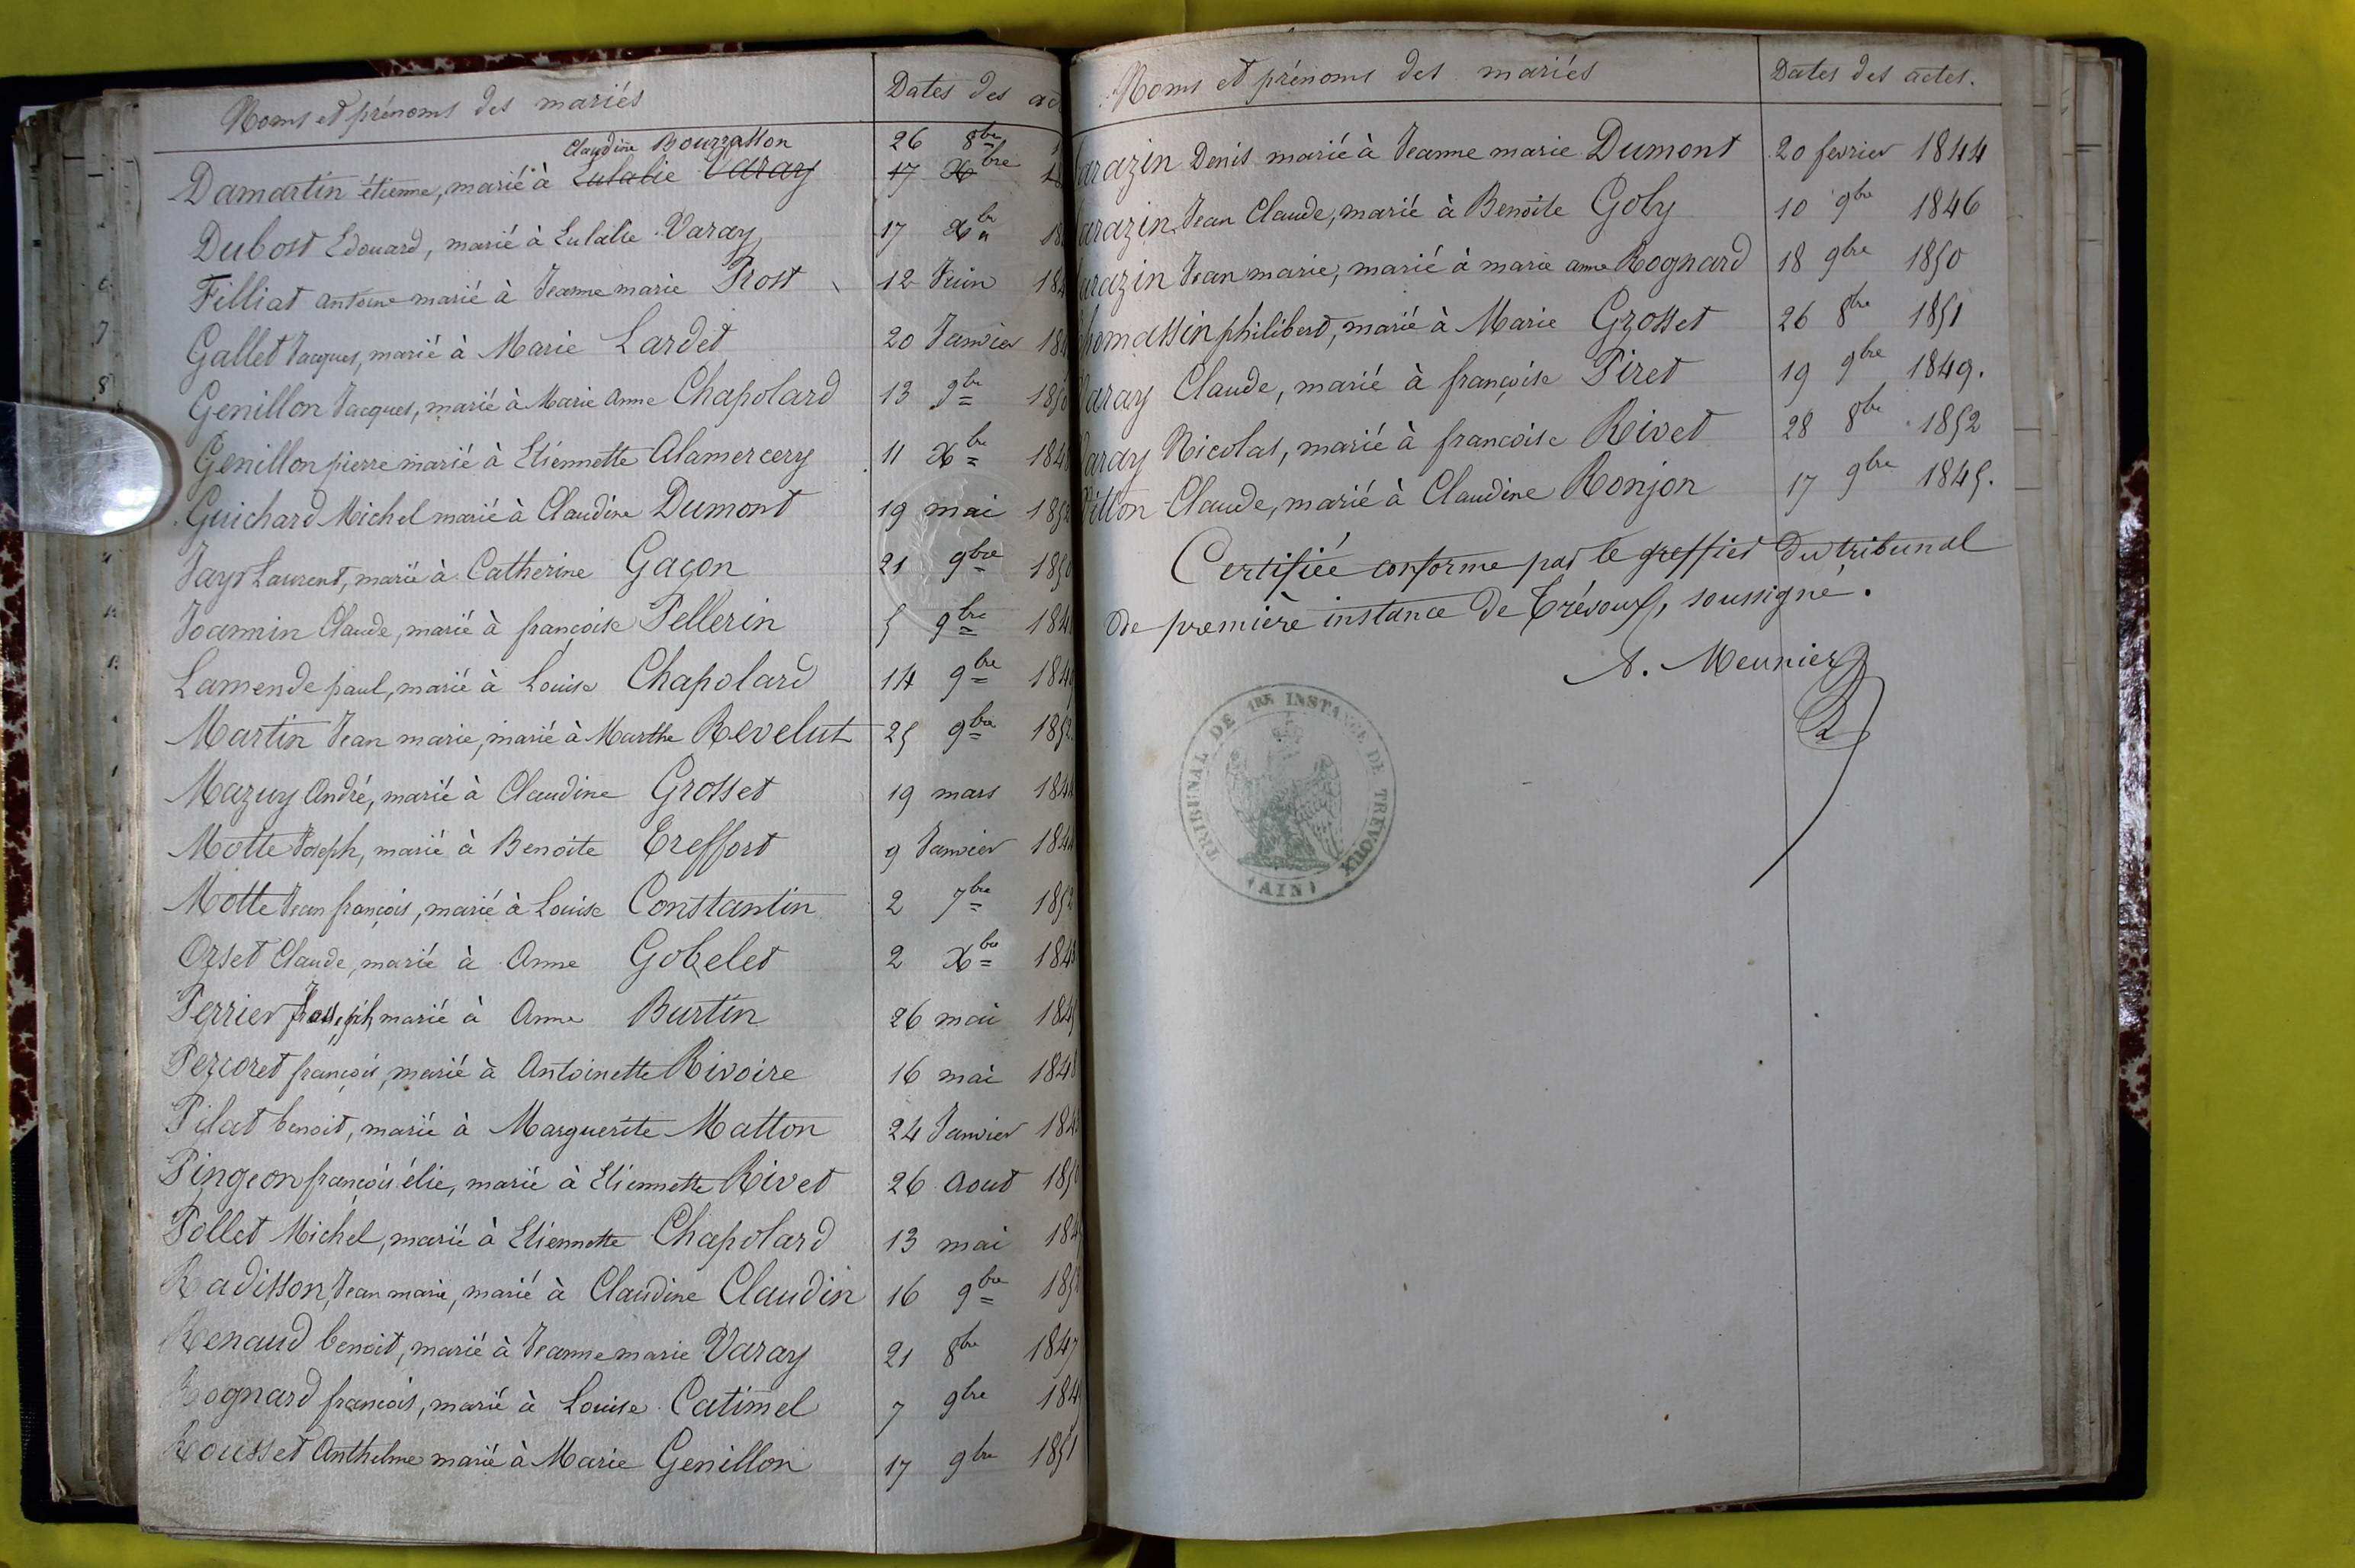 Noms et prénoms des mariés
Dates des
Claudine Bourrasson 26 8bre
Damartin étienne, marié à Eulalie Varay 17 Xbre
Dubost Edouard, marié à Eulalie Varay 17 Xbre
Filliat antoine marié à Jeanne marie Prost 12 Juin
Gallet Jacques, marié à Marie Lardet 20 Janvier
Genillon Jacques, marié à Marie Anne Chapolard 13 9bre
Genillon pierre marié à Etiennette Alamercery 11 Xbre
Guichard Michel marié à Claudine Dumont 19 mai
Jayr Laurent, marié à Catherine Gaçon 21 9bre
Joannin Claude, marié à françoise Pellerin 5 9bre
Lamende paul, marié à Louise Chapolard 14 9bre
Martin Jean marie, marié à Marthe Revelut 25 9bre
Mazuy André, marié à Claudine Grosset 19 mars
Motte Joseph, marié à Benoite Treffort 9 Janvier
Motte Jean françois, marié à Louise Constantin 2 7bre
Orset Claude, marié à Anne Gobelet 2 Xbre
Perrier Joseph, marié à Anne Burtin 26 mai
Percoret françois, marié à Antoinette Rivoire 16 mai
Pilat benoit, marié à Marguerite Matton 24 Janvier
Pingeon françois élie, marié à Etiennette Rivet 26 Aout
Pollet Michel, marié à Etiennette Chapolard 13 mai
Radisson, Jean marie, marié à Claudine Claudin 16 9bre
Renaud benoit, marié à Jeanne marie Varay 21 8bre 1847
Rognard françois, marié à Louise Catimel 7 9bre
Rousset Anthelme marié à Marie Genillon 17 9bre 1851
Noms et prénoms des mariés
Dates des actes.
arazin Denis marié à Jeanne marie Dumont 20 fevrier 1844
arazin Jean Claude, marié à Benoite Goby 10 9bre 1846
arazin Jean marie, marié à marie anne Rognard 18 9bre 1850
homassin philibert, marié à Marie Grosset 26 8bre 1851
Varay Claude, marié à françoise Piret 19 9bre 1849.
Varay Nicolas, marié à francoise Rivet 28 8bre 1852
Villon Claude, marié à Claudine Ronjon 17 9bre 1845.
Certifiée conforme par le greffier du tribunal
de première instance de Trévoux, soussigné.
A. Meunier
TRIBUNAL DE 1RE INSTANCE DE TREVOUX
(AIN)